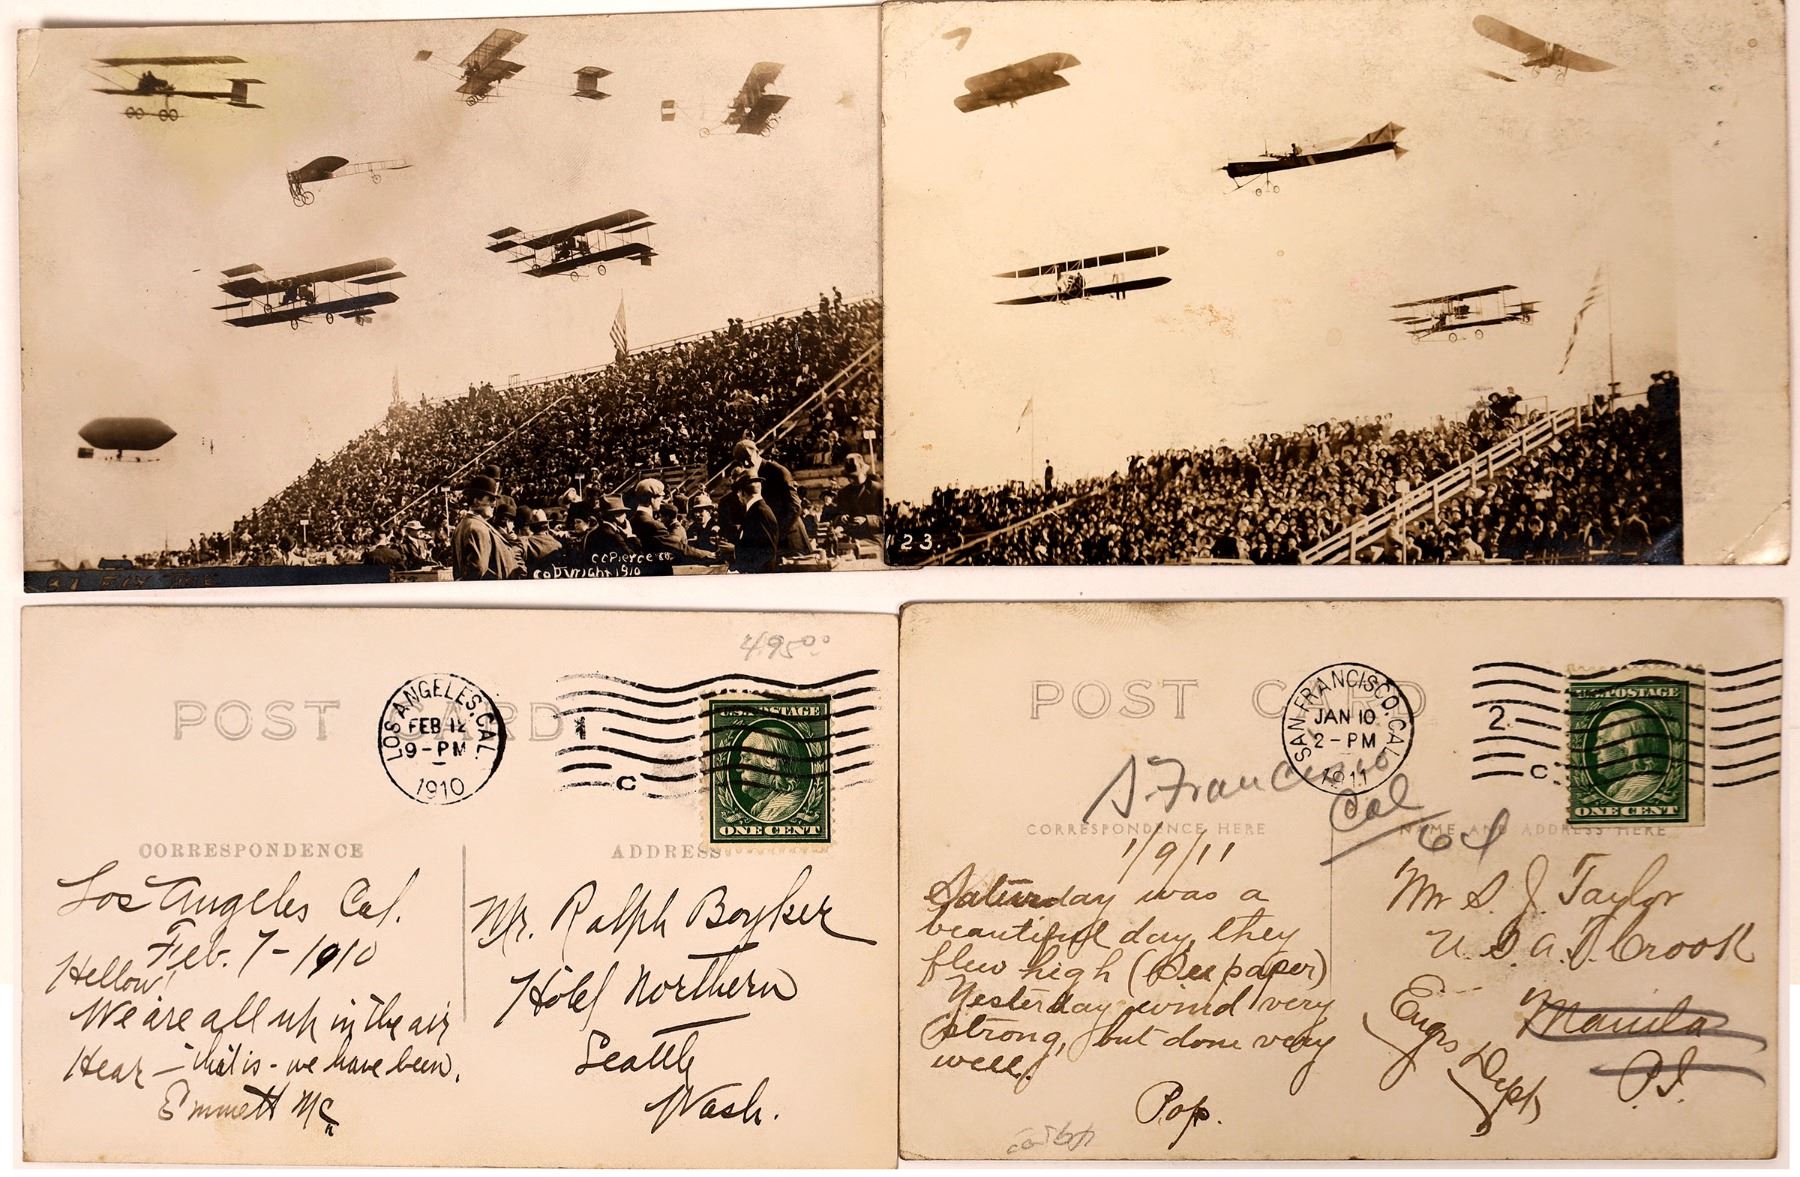 CCPierce Co.
copyright 1910
23.
4.95⁰⁰
POST CARD
LOS ANGELES, CAL.
FEB 12
9-PM
1910
1
C
U.S. POSTAGE
ONE CENT
CORRESPONDENCE
ADDRESS
Los Angeles Cal.
Feb. 7-1910
Hellow!
We are all up in the air
Hear - that is - we have been.
Emmett Mc
Mr. Ralph Boyker
Hotel Northern
Seattle
Wash.
POST CARD
SAN FRANCISCO, CAL.
JAN 10
2-PM
1911
2
C
U.S. POSTAGE
ONE CENT
S. Francisco
Cal
CORRESPONDENCE HERE
NAME AND ADDRESS HERE
1/9/11
Saturday was a
beautiful day, they
flew high (See paper)
Yesterday wind very
strong, but done very
well.
Pop.
Mr S. J. Taylor
U.S.A.T. Crook
Engrs Dept,
Manila
P.I.